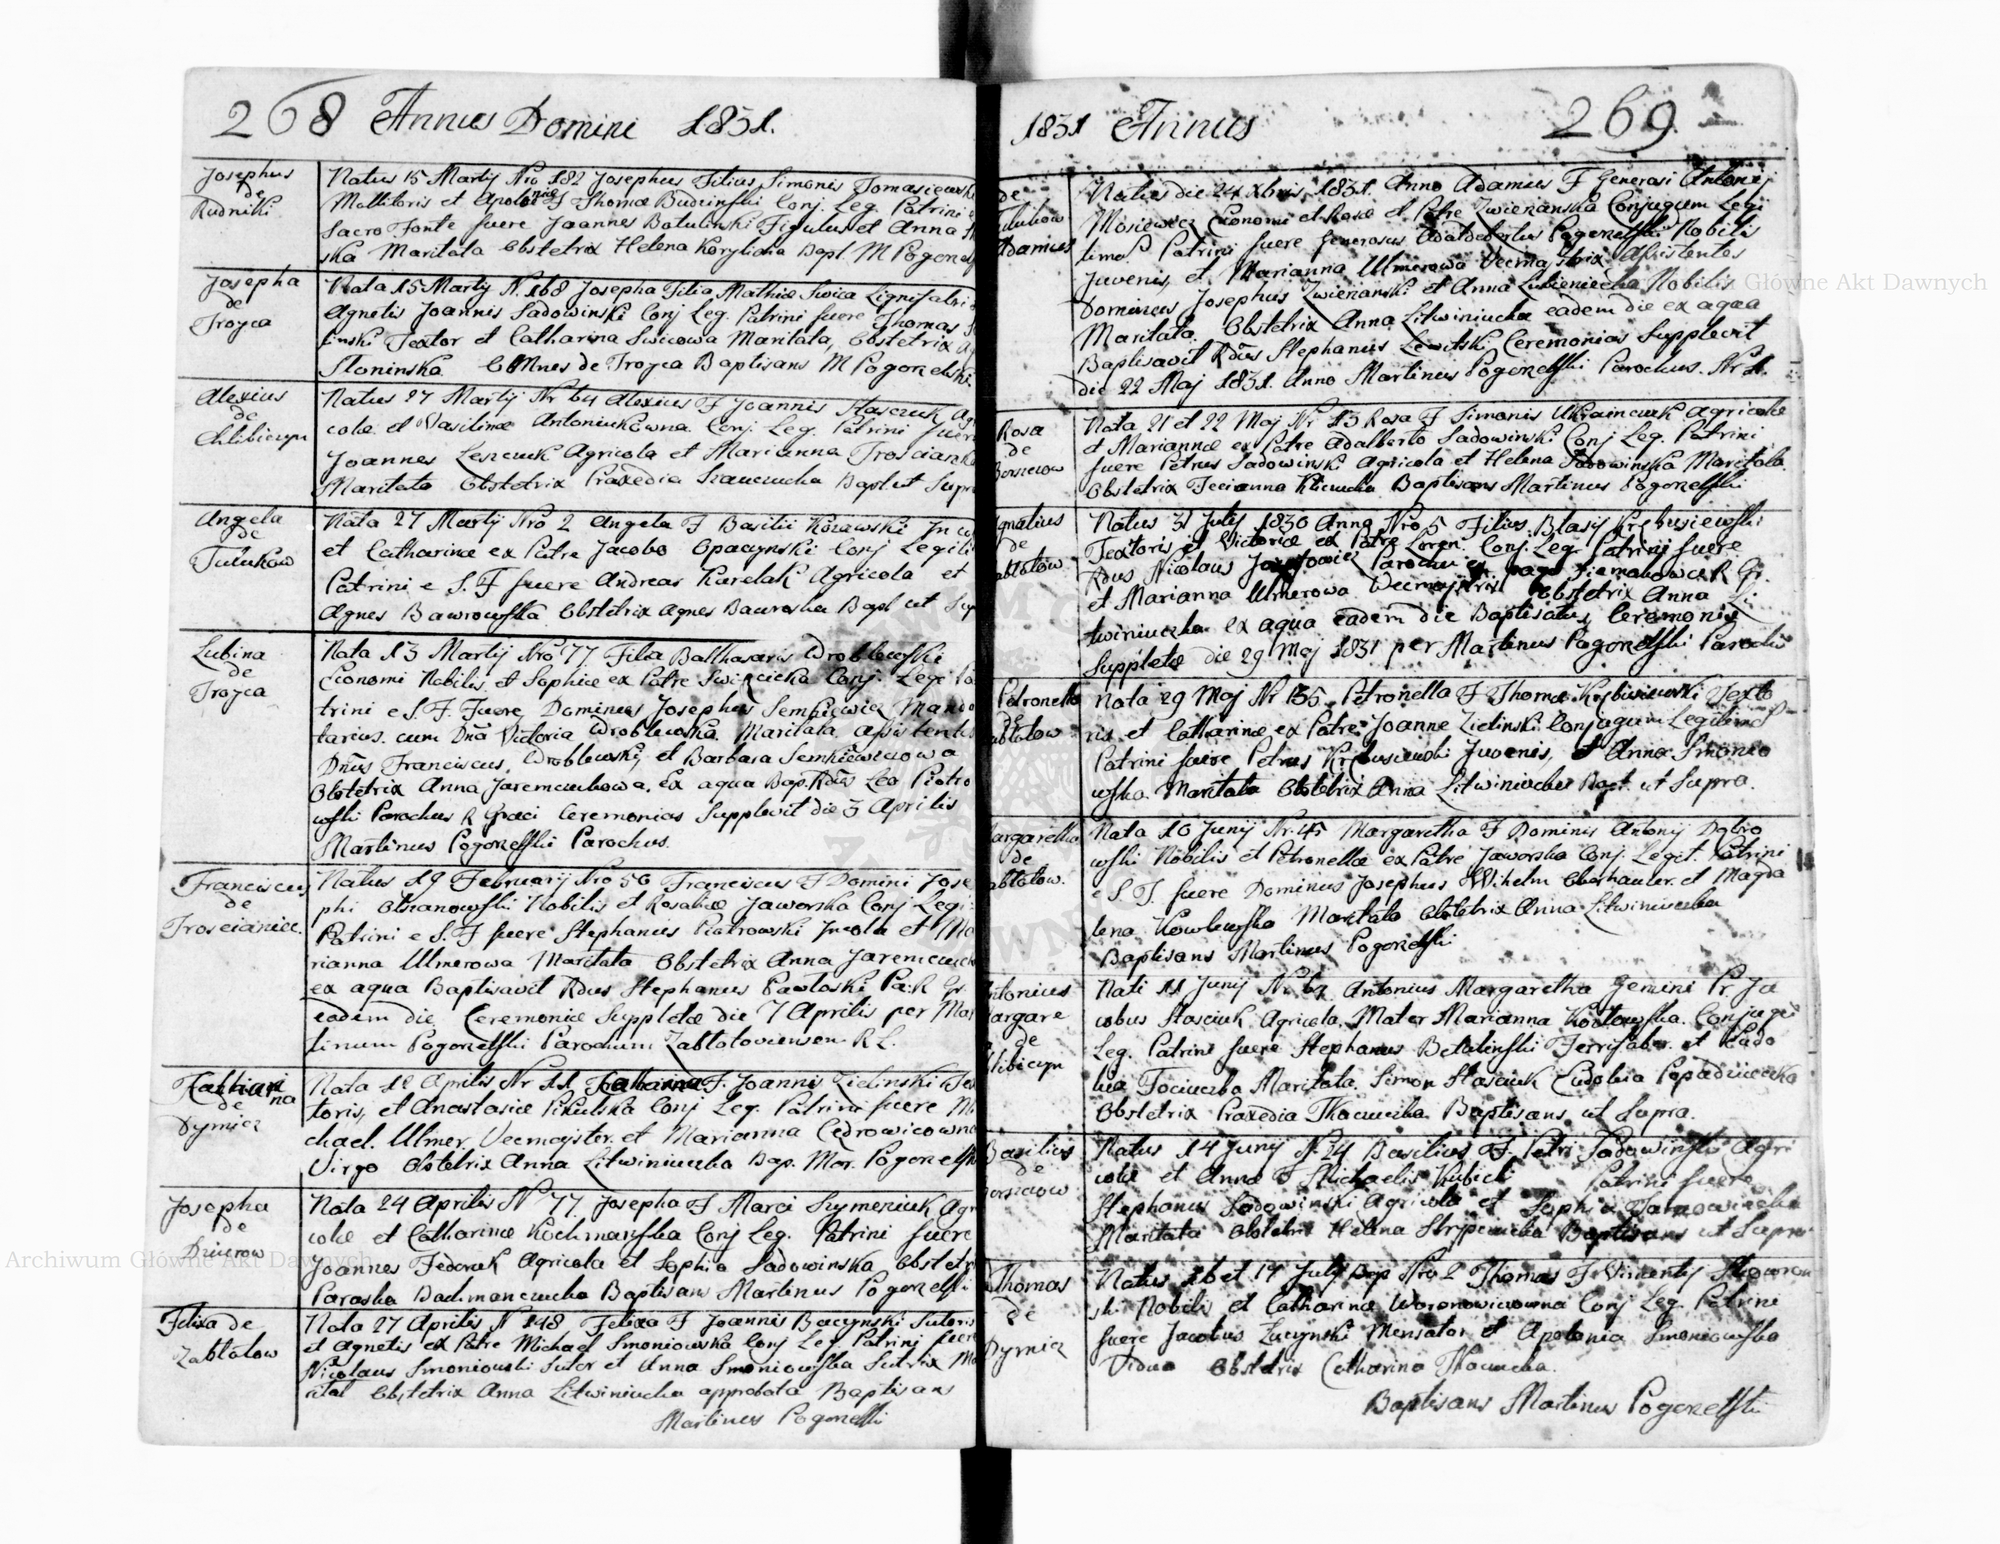 268 Annus Domini 1831.
Josephus
de
Rudniki
Natus 15 Martij Nro 182 Josephus Filius Simonis Tomasiewski
Mollitoris et Apoloniae F Thomae Budzinski Conj. Leg. Patrini e
Sacro Fonte fuere Joannes Batulinski Figulus et Anna
ska Maritata Obstetrix Helena Korylicha Bapt. M Pogonelski
Josepha
de
Troyca
Nata 15 Martij N. 168 Josepha Filia Mathiae Swica Lignifabri
Agnetis Joannis Sadowinski Conj Leg. Patrini fuere Thomas
linski Textor et Catharina Swicowa Maritata, Obstetrix
Sloninska Omnes de Troyca Baptisans M Pogonelski.
Alexius
de
Chlibiczyn
Natus 27 Martij Nr 64 Alexius F Joannis Stasczuk Agri
colae et Vasilinae Antoniukowna Conj. Leg. Patrini fuere
Joannes Leszczuk Agricola et Marianna Troscianka
Maritata Obstetrix Praxedia Bapt ut Supra
Angela
de
Tulukow
Nata 27 Martij Nro 2 Angela F Basilii Kozawski
et Catharinae ex Patre Jacobo Opaczynski Conj Legiti
Patrini e S. F fuere Andreas Kurelak Agricola et
Agnes Bawrowska Obstetrix Agnes Bawroska Bapt ut Sup
Lubina
de
Troyca
Nata 13 Martij Nro 77. Filia Balthasaris Wroblewski
Economi Nobilis et Sophiae ex Patre Swięcicka Conj. Legi Pa
trini e S. F. fuere Dominus Josephus Semkiewicz Manda
tarius cum Dnã Victoria Wroblewska Maritata, assistentes
Dnus Franciscus Wroblewski, et Barbara Semkiewiczowa
Obstetrix Anna Jaremczukowa, Ex aqua Bap. Rdus Leo Piotro
wski Parochus R Graeci Ceremonias Supplevit die 3 Aprilis
Martinus Pogonelski Parochus.
Franciscus
de
Troscianiec.
Natus 19 Februarij Nro 50 Franciscus F Domini Jose
phi Olszanowski Nobilis et Rosaliae Jaworska Conj Legi
Patrini e S. F fuere Stephanus Piotrowski Incola et Ma
rianna Ulmerowa Maritata Obstetrix Anna Jaremczuk
ex aqua Baptisavit Rdus Stephanus Pawloski Pa. R Gr.
eadem die Ceremoniae Suppletae die 7 Aprilis per Mar
tinum Pogonelski Parochum Zablotoviensem R L.
Catharina
de
Dzymicz
Nata 12 Aprilis Nr 11 Catharina F. Joannis Zielinski Tex
toris, et Anastasiae Pikulska Conj Leg. Patrini fuere Mi
chael Ulmer Vecmajster et Marianna Cedrowicowna
Virgo Obstetrix Anna Litwiniucha Bap. Mar. Pogonelski
Josepha
de
Dziurow
Nata 24 Aprilis N 77 Josepha F Marci Szymeniuk Agri
colae et Catharinae Kochmanska Conj Leg. Patrini fuere
Joannes Federuk Agricola et Sophia Sadowinska Obstetr
Paraska Bachmanczucha Baptisans Martinus Pogonelski
Felixa de
Zablotow
Nata 27 Aprilis N 148 Felixa F Joannis Baczynski Sutoris
et Agnetis ex Patre Michael Smoniowska Conj Leg Patrini fuere
Nicolaus Smoniowski Sutor et Anna Smoniowska Sutrix Ma
ritat Obstetrix Anna Litwiniucha approbata Baptisans
Martinus Pogonelski
1831 Annus 269
de
Tulukow
Adamus
Natus die 24 Xbris 1831. Anno Adamus F Generosi Antonij
Mosiewicz Economi et Rosae ex Patre Zwierzanska Conjugum Legi
timo. Patrini fuere Generosus Adaldebertus Pogonelski Nobilis
Juvenis, et Marianna Ulmerowa Vecmajstrix Assistentes
Dominus Josephus Zwierzanski et Anna Lubieniecka Nobilis
Maritata. Obstetrix Anna Litwiniucha eadem die ex aqua
Baptisavit Rdus Stephanus Lewitski Ceremonias Supplevit
die 22 Maj 1831. Anno Martinus Pogonelski Parochus. Nr 1.
Rosa
de
Borszczow
Nata 21 et 22 Maj Nr 13 Rosa F Simonis Ukrainczuk Agricolae
et Mariannae ex Patre Adalberto Sadowinski Conj Leg. Patrini
fuere Petrus Sadowinski Agricola et Helena Sadowinska Maritata
Obstetrix Baptisans Martinus Pogonelski
Ignatius
de
Zablotow
Natus 31 Julij 1830 Anno Nro 5 Filius Blasij Krębusiewski
Textoris et Victoriae ex Patre Loren. Conj. Leg. Patrini fuere
Rdus Nicolaus Parochus ex pago R Gr.
et Marianna Ulmerowa Vecmajstrix Obstetrix Anna Li
twiniucha ex aqua eadem die Baptisatus, Ceremoniae
Suppletae die 29 Maj 1831 per Martinus Pogonelski Parochus
Petronella
de
Zablotow
Nata 29 Maj Nr 135. Petronella F Thomae Krębusiewski Texto
ris et Catharinae ex Patre Joanne Zielinski Conjugum Legitimo
Patrini fuere Petrus Krębusiewski Juvenis, et Anna Smonio
wska Maritata Obstetrix Anna Litwiniucha Bapt. ut Supra.
Margaretha
de
Zablotow.
Nata 10 Junij Nr. 45 Margaretha F Dominis Antonij Dobro
wski Nobilis et Petronellae ex Patre Jaworska Conj. Legit. Patrini
e S. F. fuere Dominus Josephus Wihelm Oberhauler et Magda
lena Kowlewska Maritata Obstetrix Anna Litwiniucha
Baptisans Martinus Pogonelski
Antonius
Margare
de
Chlibiczyn
Nati 11 Junij Nr 67 Antonius Margaretha Gemini Pr Ja
cobus Stasciuk Agricola. Mater Marianna Kozlowska. Conjugi
Leg. Patrini fuere Stephanus Betulinski Ferrifaber et Eudo
kia Tociuczka Maritata. Simon Stasciuk Eudokia Popadiuczka
Obstetrix Praxedia Tkaczucha Baptisans ut Supra.
Basilius
de
Borszczow
Natus 14 Junij N. 24 Basilius F. Petri Sadowinski Agri
colae et Annae F Michaelis Kubicki Patrini fuere
Stephanus Sadowinski Agricola et Sophia
Maritata Obstetrix Helena Baptisans ut Supra
Thomas
de
Dzymicz
Natus 16 et 17 Julij Bap Nro 2 Thomas F Vincentij Skowron
ski Nobilis et Catharinae Woronowiczowna Conj Leg Patrini
fuere Jacobus Zuczynski Mensator et Apolonia Smoniowska
Vidua Obstetrix Catharina Tkaczucha.
Baptisans Martinus Pogonelski
Archiwum Główne Akt Dawnych
Główne Akt Dawnych